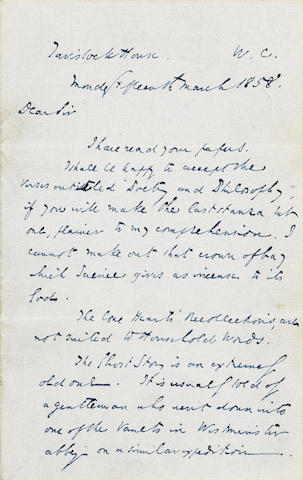 Tavistock House. W.C.
Monday fifteenth March 1858.
Dear Sir
I have read your papers.
I shall be happy to accept the
verses entitled "Poetry and Philosophy",
if you will make the last stanza but
one, plainer to my comprehension. I
cannot make out that crown of bay
which Science gives as incense to its
God.
The Hearts' Recollections, are
not suited to Household Words.
The Ghost Story is an extremely
old one. It is usually told of
a gentleman who went down into
one of the Vaults in Westminster
Abbey on a similar expedition